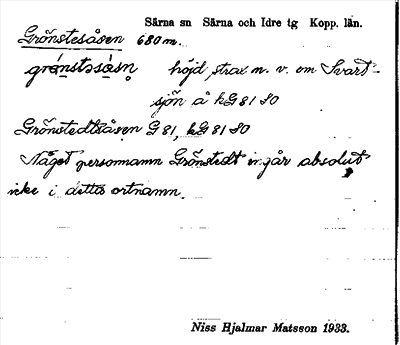 Särna sn Särna och Idre tg Kopp. län.
Grönstesåsen 680 m.
grǿnstɘsåsn̥ höjd, strax m. v. om Svart-
sjön å kG 81 SO
Grönstedtsåsen G 81, kG 81 SO
Något personnamn Grönstedt ingår absolut
icke i detta ortnamn.
Niss Hjalmar Matsson 1933.